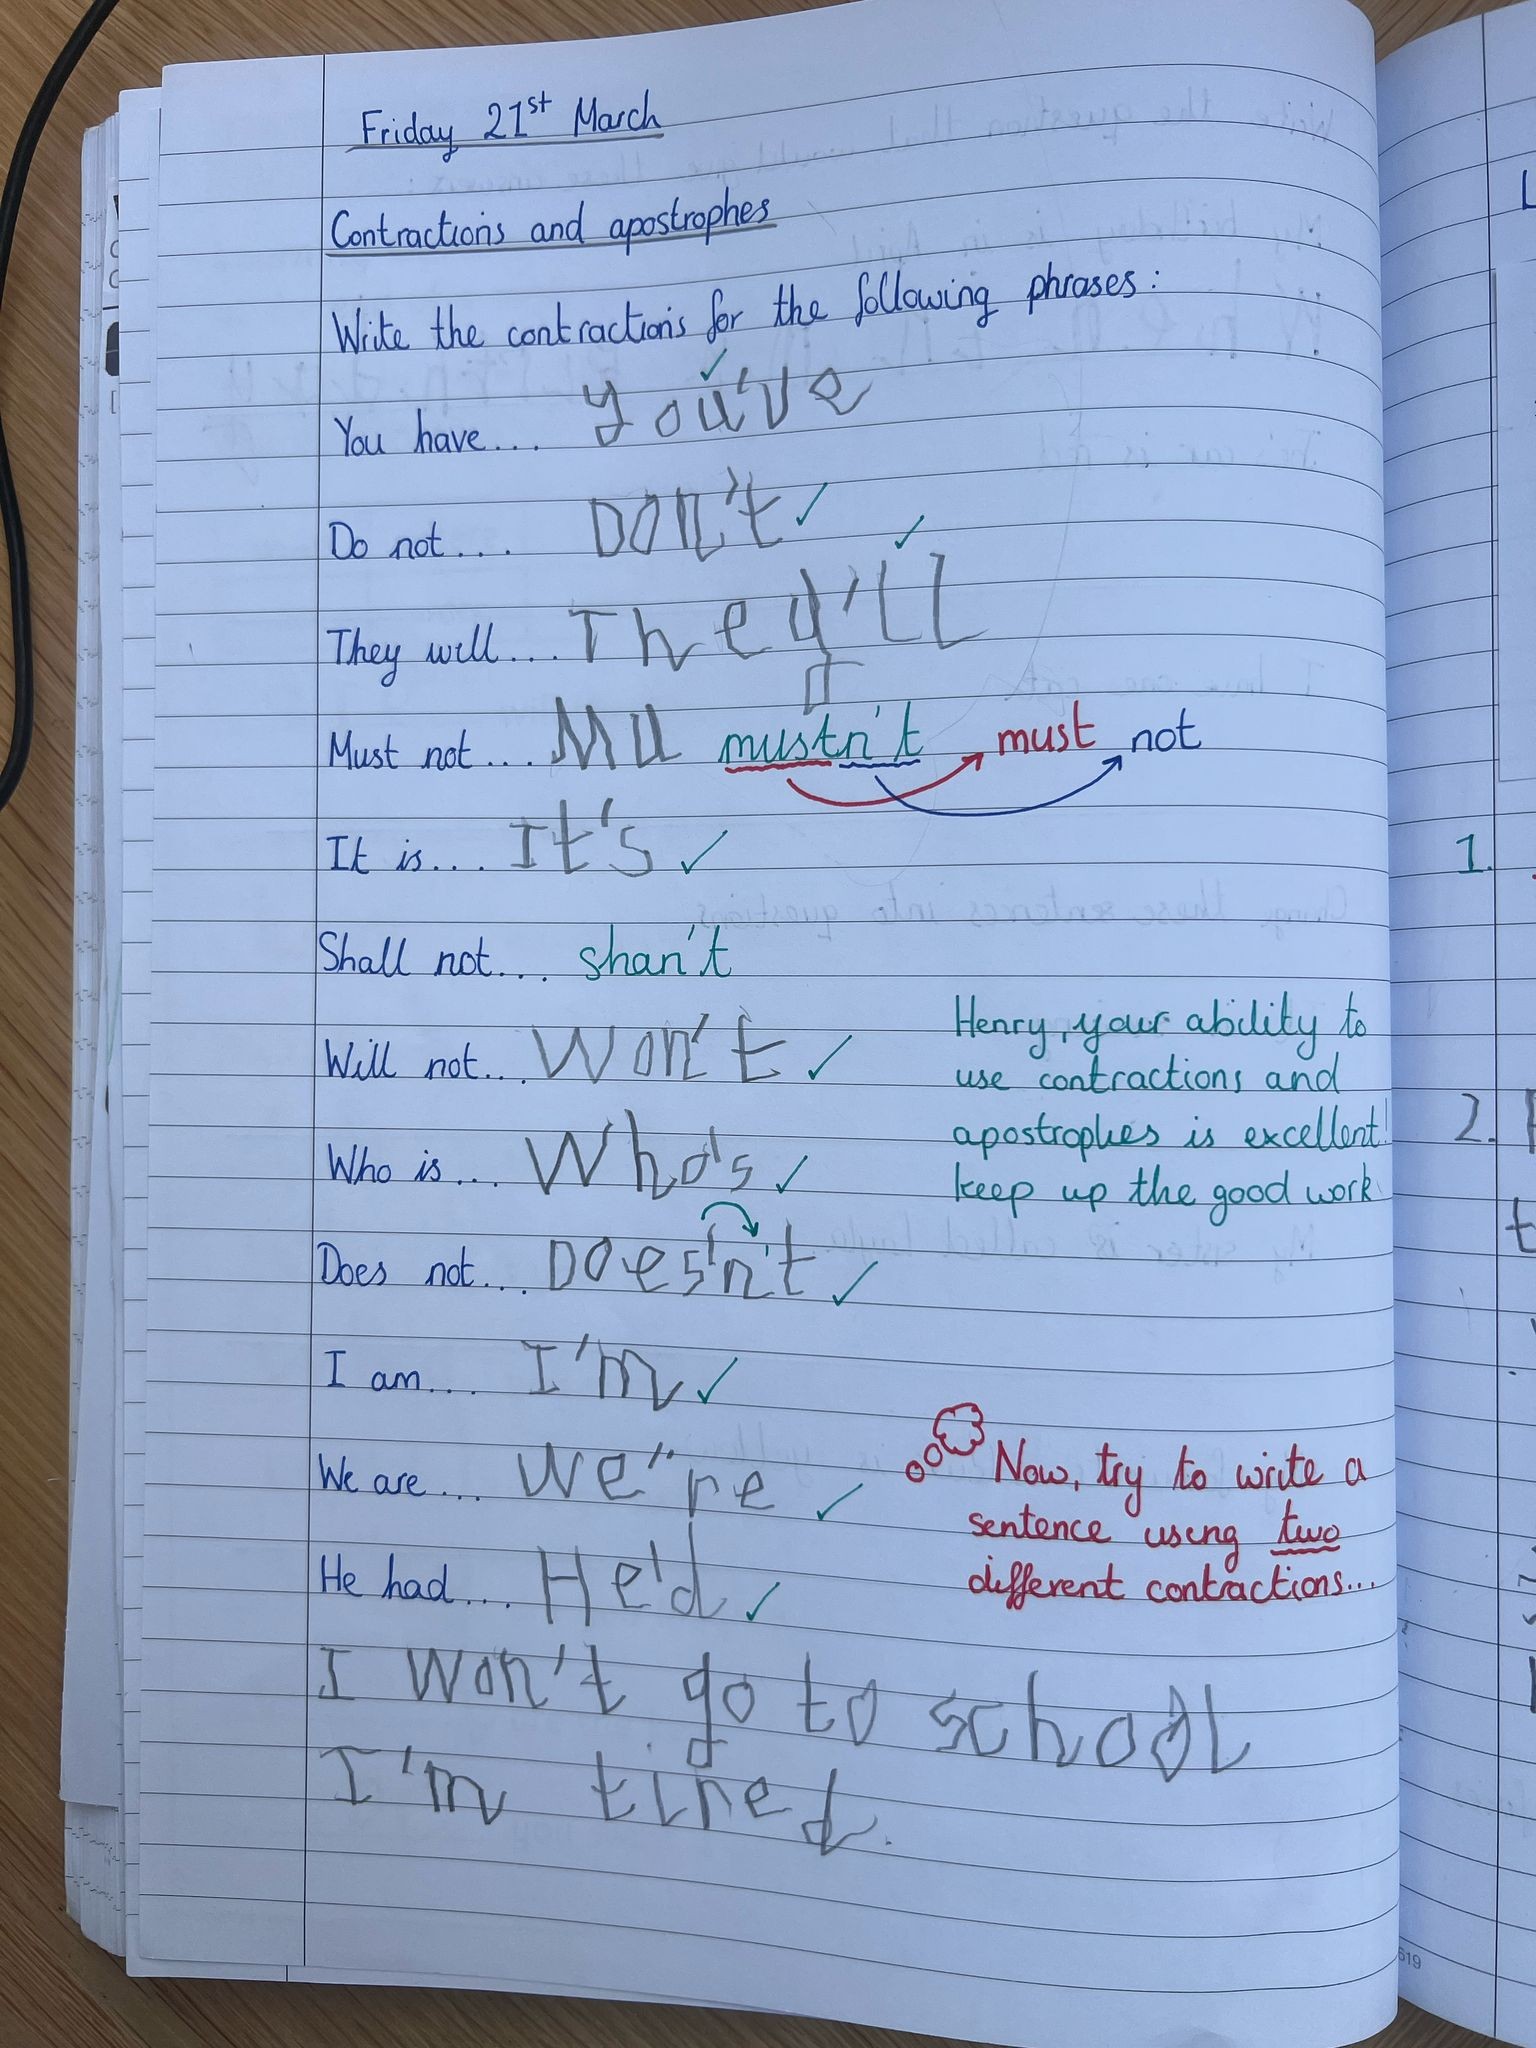 Friday 21st March
Contractions and apostrophes
Write the contractions for the following phrases:
You have... you've
Do not... Don't
They will... They'll
Must not... Mu mustn't must not
It is... It's
Shall not... shan't
Will not... Won't
Who is... Who's
Does not... Does'n't
I am... I'm
We are... We''re
He had... He'd
Henry, your ability to
use contractions and
apostrophes is excellent!
keep up the good work
Now, try to write a
sentence using two
different contractions...
I won't go to school
I'm tired.
1.
2.
619